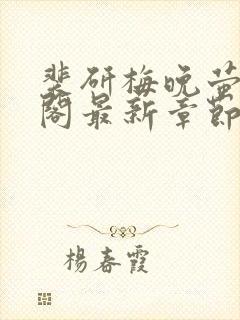 裴研梅晚萤
阁最新章节
杨春霞